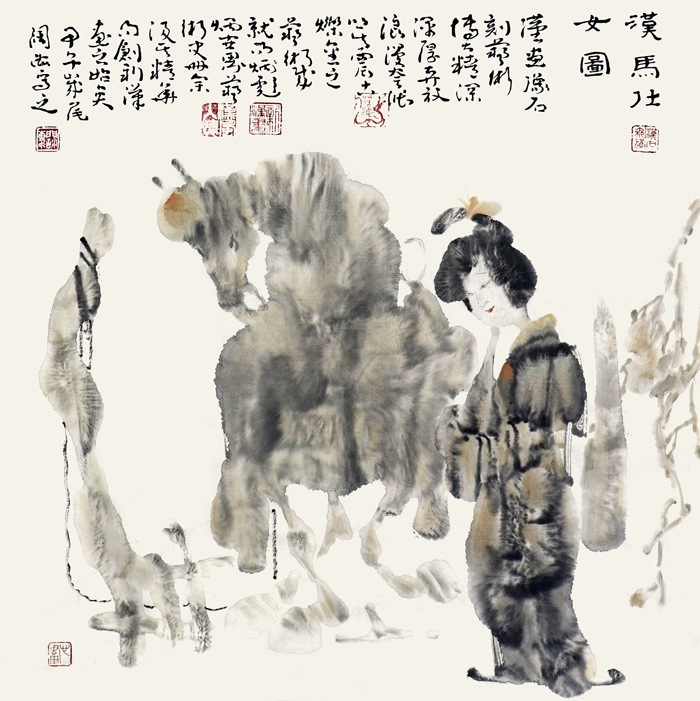 漢馬仕
女圖
漢畫像石
刻藝術
博大精深
深厚奔放
浪漫奇
以其震
爍之
藝術成
就而炳彪
藝
術史冊余
汲其精華
而創新漢
畫之始矣
甲午歲尾
周寫之